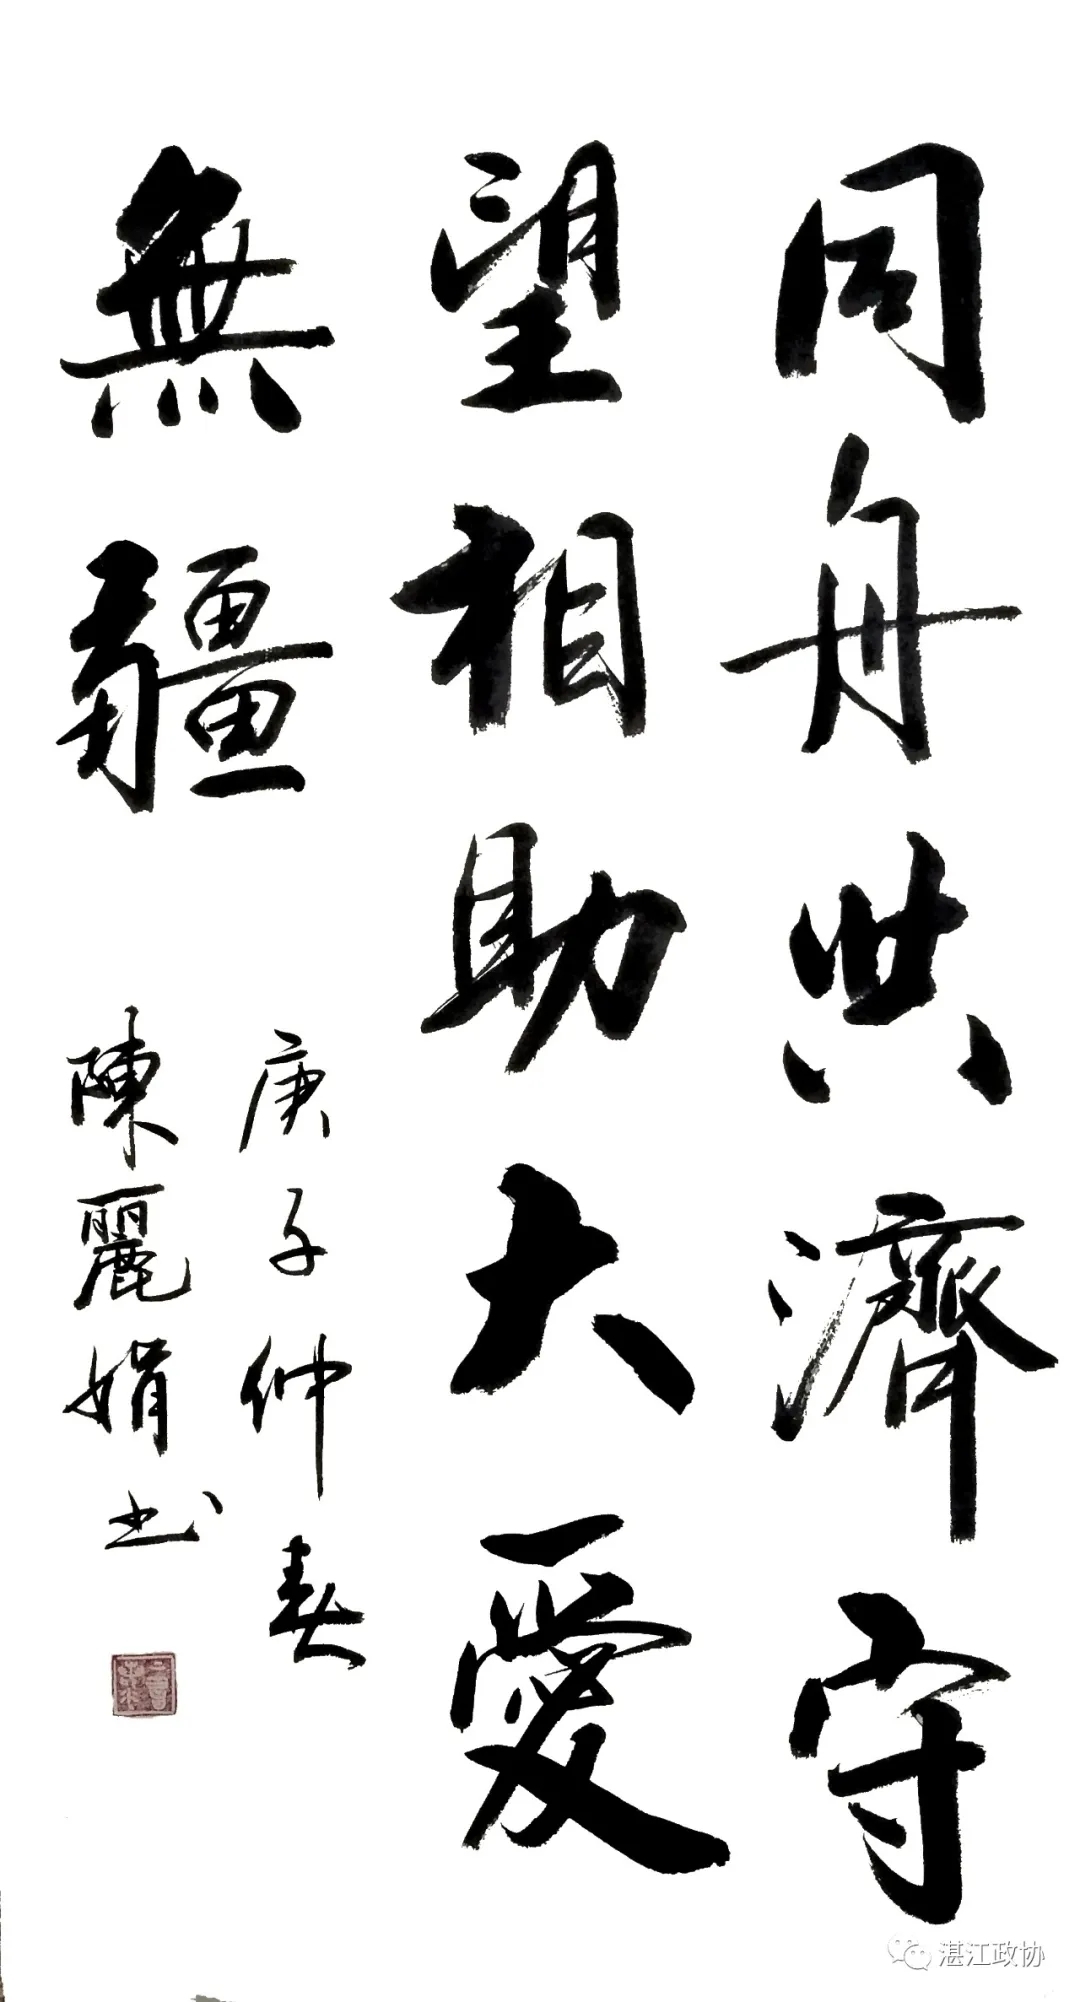 同舟共濟守
望相助大愛
無疆
庚子仲春
陳麗娟书
湛江政协